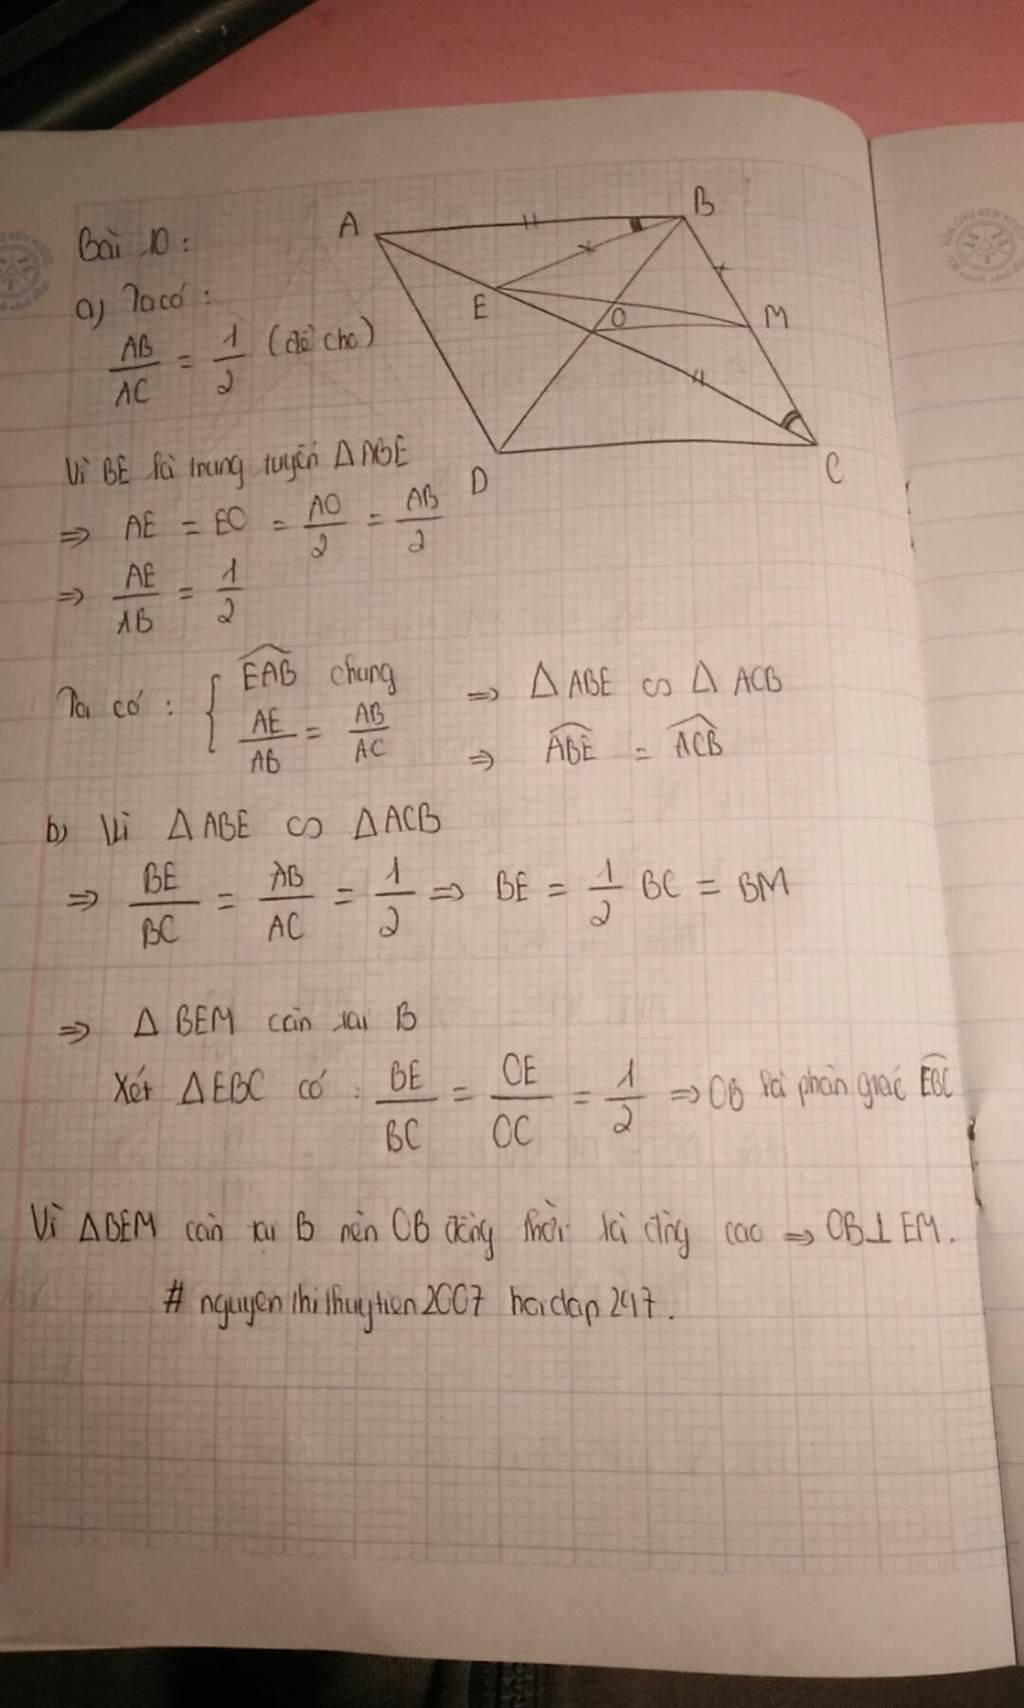 Bài 10:
a) Ta có:
AB/AC = 1/2 (đề cho)
A
B
E
O
M
D
C
Vì BE là trung tuyến ΔABE
⇒ AE = EO = AO/2 = AB/2
⇒ AE/AB = 1/2
Ta có: { EAB^ chung ⇒ ΔABE ∽ ΔACB
AE/AB = AB/AC ⇒ ABE^ = ACB^
b) Vì ΔABE ∽ ΔACB
⇒ BE/BC = AB/AC = 1/2 ⇒ BE = 1/2 BC = BM
⇒ ΔBEM cân tại B
Xét ΔEBC có: BE/BC = OE/OC = 1/2 ⇒ OB là phân giác EBC^
Vì ΔBEM cân tại B nên OB đồng thời là đg cao ⇒ OB⊥EM.
# nguyenthithuytien2007 hoidap247.